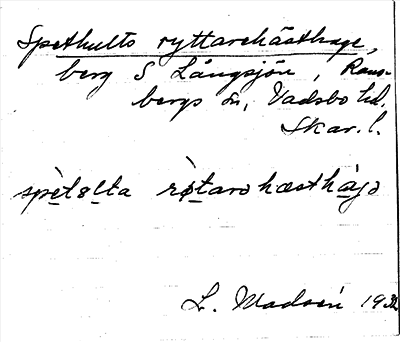 Spethults ryttarehästhage,
berg S Långsjön, Rans-
bergs sn, Vadsbo hd,
Skar. l.
spètølta rø̀tarə hæsthàgə
L. Madsén 1932